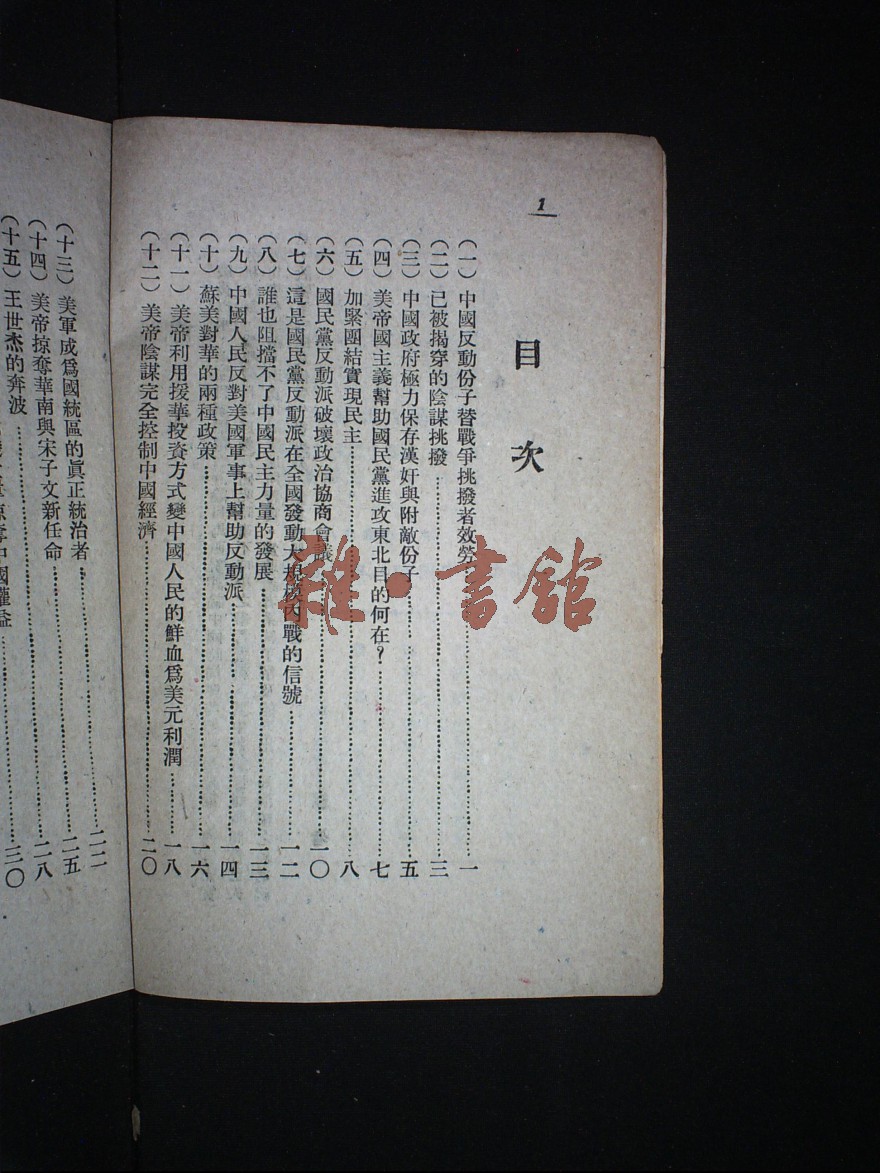 1
目次
(一)中國反動份子替戰爭挑撥者效勞……一
(二)已被揭穿的陰謀挑撥……三
(三)中國政府極力保存漢奸與附敵份子……五
(四)美帝國主義幫助國民黨進攻東北目的何在?……七
(五)加緊團結實現民主……八
(六)國民黨反動派破壞政治協商會議……一〇
(七)這是國民黨反動派在全國發動大規模內戰的信號……一二
(八)誰也阻擋不了中國民主力量的發展……一三
(九)中國人民反對美國軍事上幫助反動派……一四
(十)蘇美對華的兩種政策……一六
(十一)美帝利用援華投資方式變中國人民的鮮血爲美元利潤……一八
(十二)美帝陰謀完全控制中國經濟……二〇
(十三)美軍成爲國統區的眞正統治者……二二
(十四)美帝掠奪華南與宋子文新任命……二五
(十五)王世杰的奔波……二八
中國權益……三〇
雜·書館